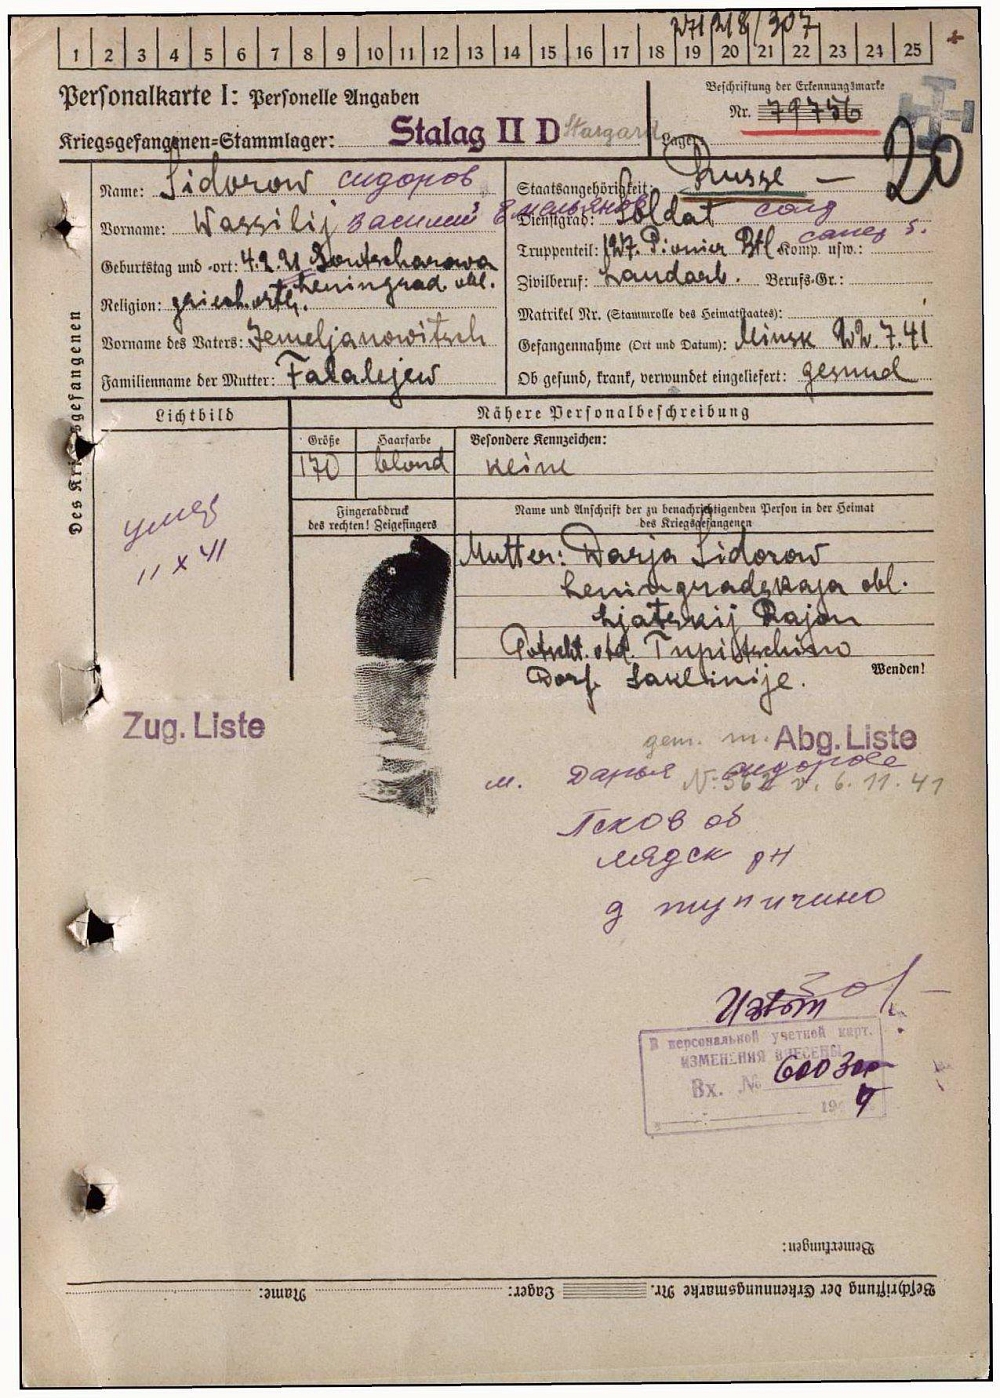 271218/307
1 2 3 4 5 6 7 8 9 10 11 12 13 14 15 16 17 18 19 20 21 22 23 24 25
Personalkarte I: Personelle Angaben
Beschriftung der Erkennungsmarke
Nr. 79756
Kriegsgefangenen-Stammlager: Stalag II D Stargard
Lager:
20
Des Kriegsgefangenen
Name: Sidorow сидоров
Staatsangehörigkeit: Russe —
Vorname: Wassilij Василий Емельянов
Dienstgrad: Soldat солд
Geburtstag und -ort: 4.2.21 Gontscharowa
Leningrad. obl.
Truppenteil: 127. Pionier Btl Komp. usw.: сапер б.
Zivilberuf: Landarb. Berufs-Gr.:
Religion: griech. orth.
Matrikel Nr. (Stammrolle des Heimatstaates):
Vorname des Vaters: Jemeljanowitsch
Gefangennahme (Ort und Datum): Minsk 22.7.41
Familienname der Mutter: Falalejew
Ob gesund, krank, verwundet eingeliefert: gesund
Lichtbild
Nähere Personalbeschreibung
Größe Haarfarbe Besondere Kennzeichen:
170 blond keine
Fingerabdruck
des rechten! Zeigefingers
Name und Anschrift der zu benachrichtigenden Person in der Heimat
des Kriegsgefangenen
умер
11 X 41
Mutter: Darja Sidorow
Leningradskaja obl.
Ljatskij Rajon
Potscht. otd. Tupitschino
Dorf. Saklinije.
Wenden!
Zug. Liste
gem. m. Abg. Liste
N: 562 v. 6.11.41
м. Дарья сидорова
Псков об
лядск рн
д тупичино
В персональной учетной карт.
ИЗМЕНЕНИЯ ВНЕСЕНЫ
Вх. № 600300
19
Bemerkungen:
Beschriftung der Erkennungsmarke Nr. Lager: Name: